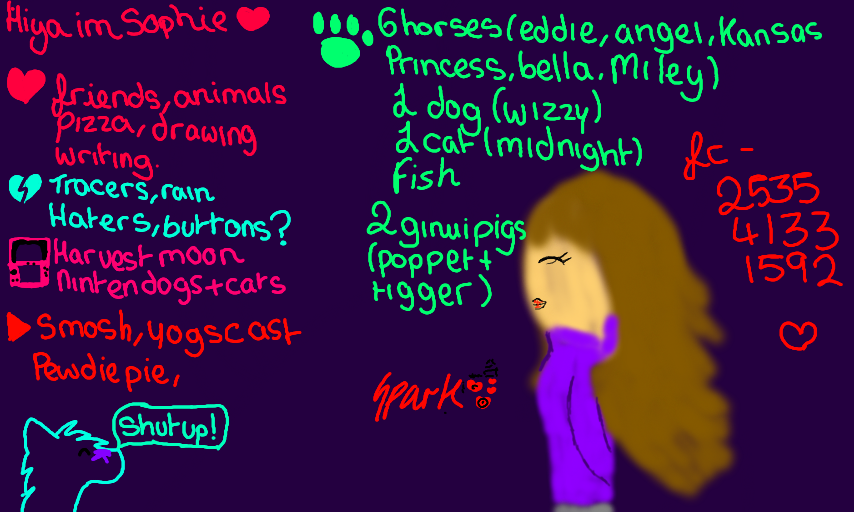 Hiya im Sophie
friends, animals
pizza, drawing
writing.
Tracers, rain
Haters, buttons?
Harvest moon
nintendogs+cats
Smosh, yogscast
Pewdiepie,
Shut up!
6 horses (eddie, angel, Kansas
Princess, bella. Miley)
1 dog (wizzy)
1 cat (midnight)
Fish
2 ginuipigs
(poppet+
tigger)
Spark
fc -
2535
4133
1592